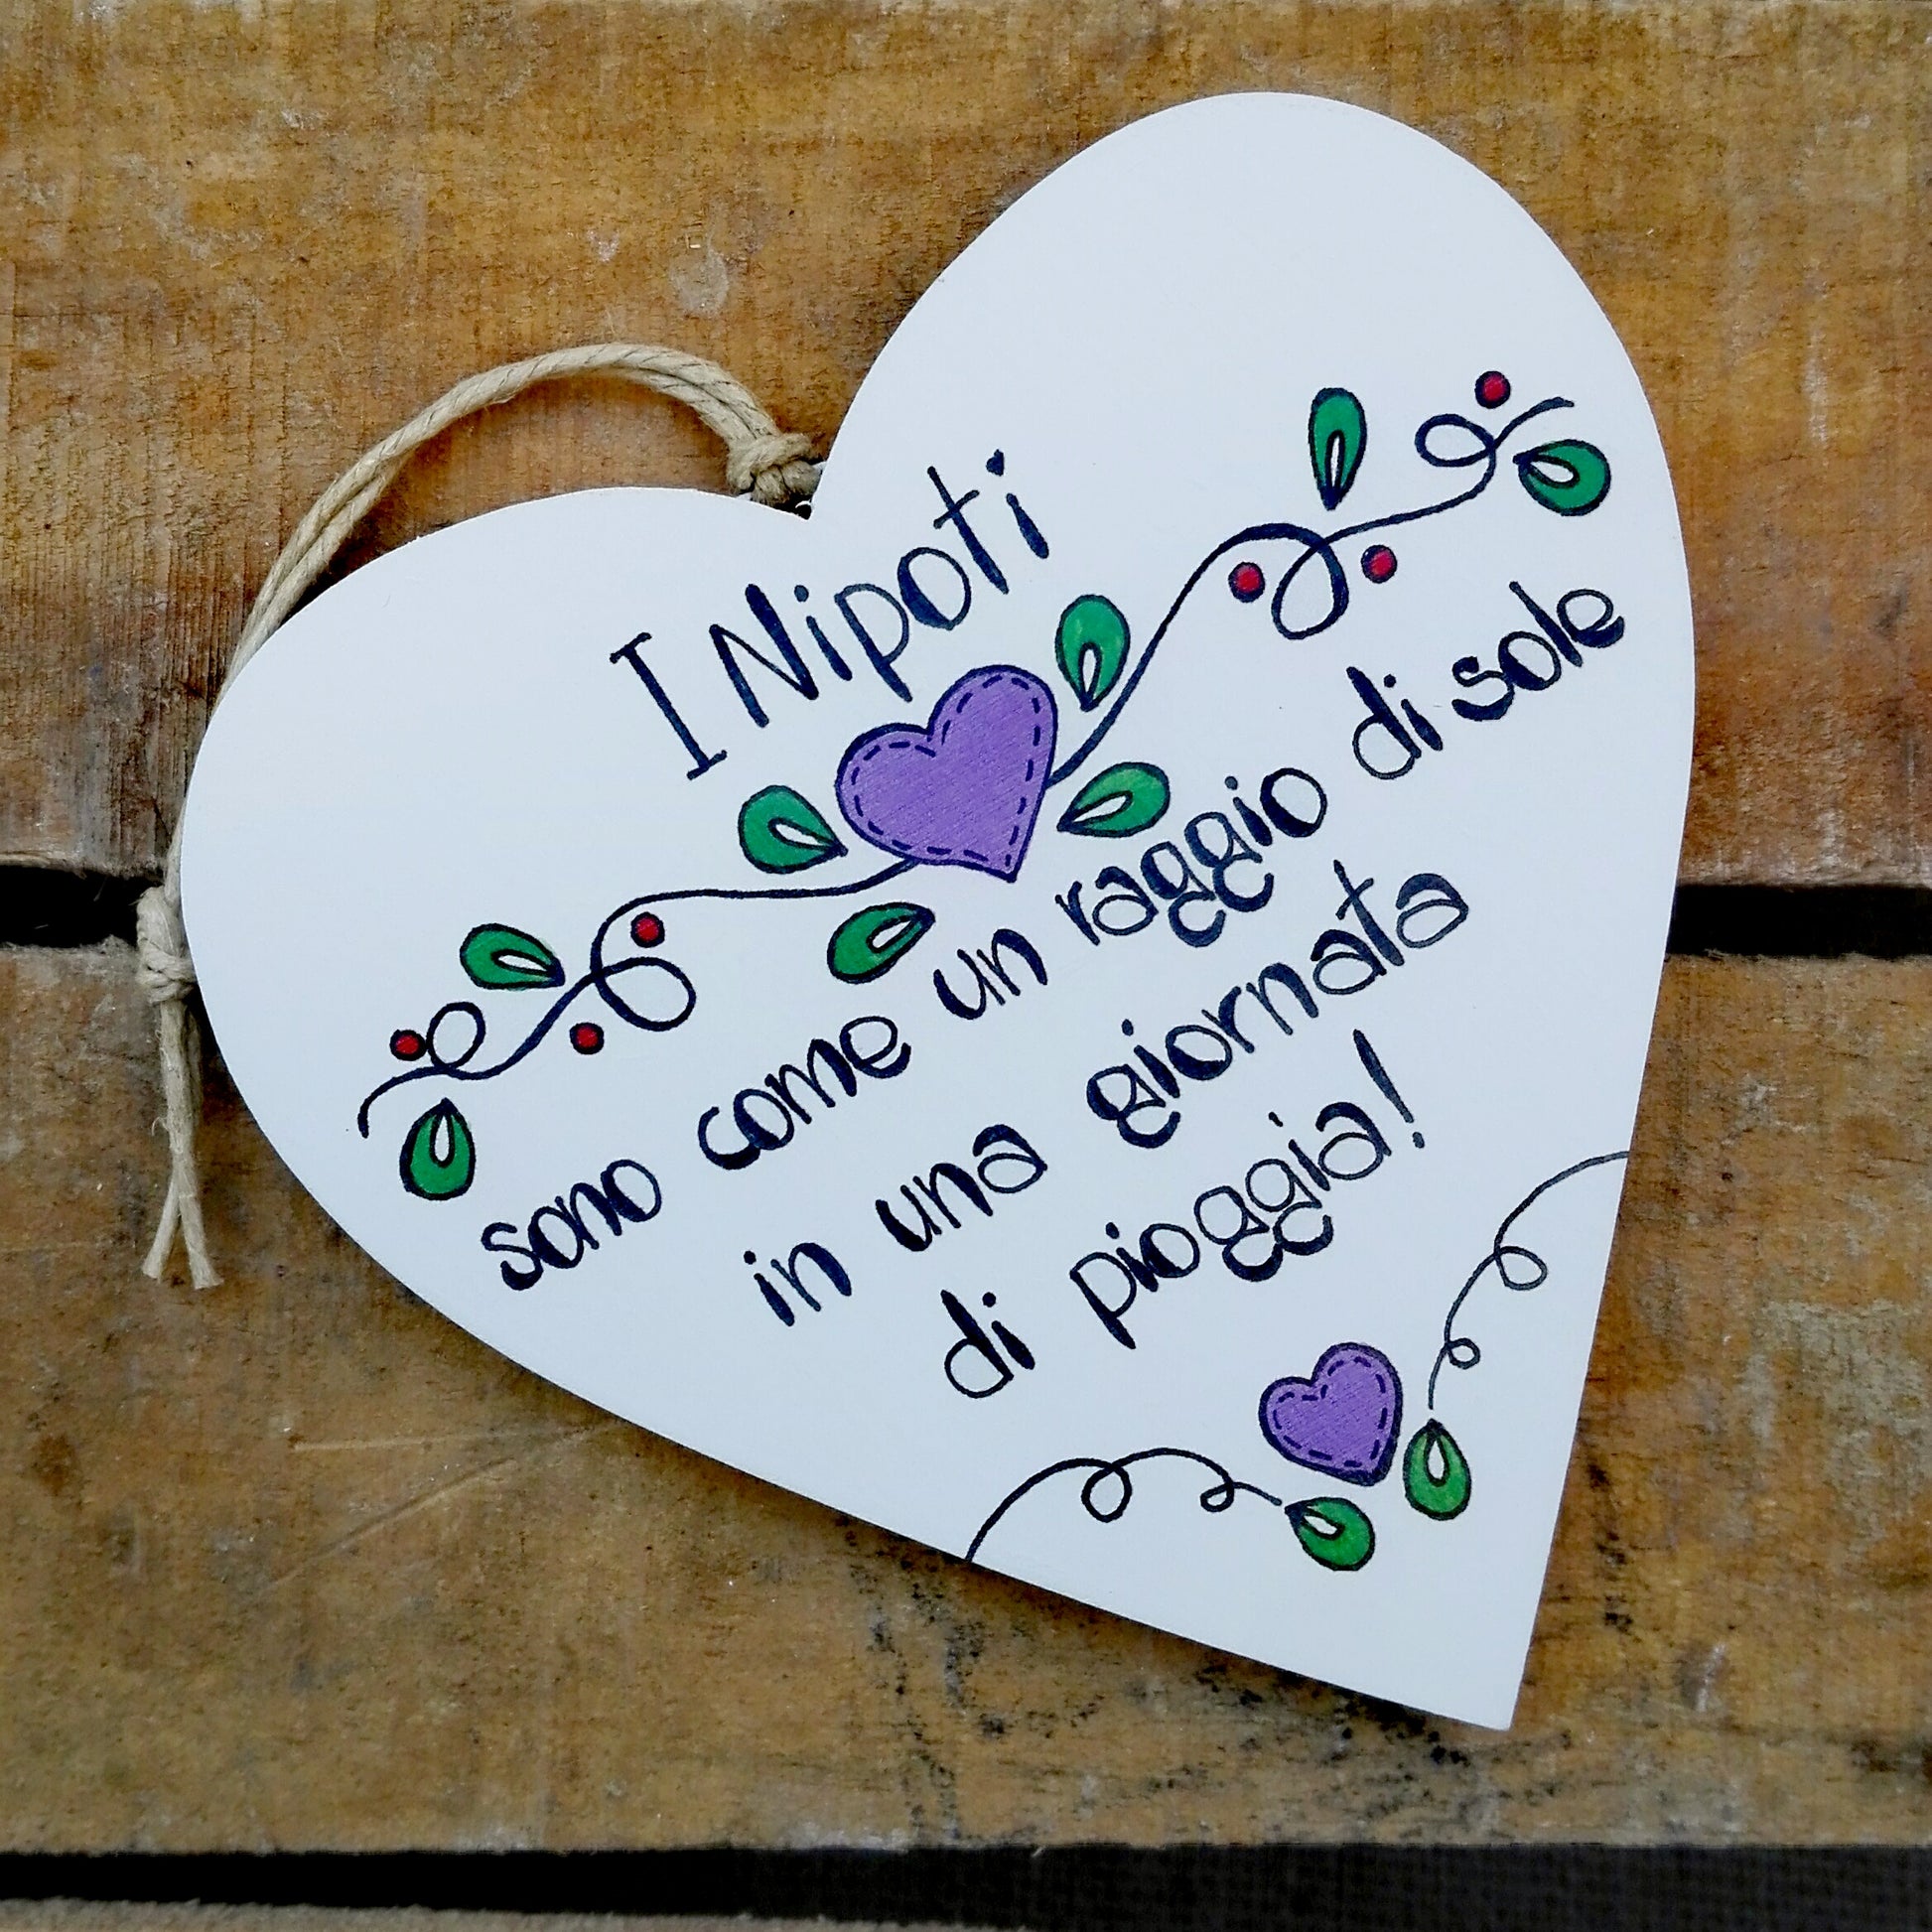 I Nipoti
sono come un raggio di sole
in una giornata
di pioggia!